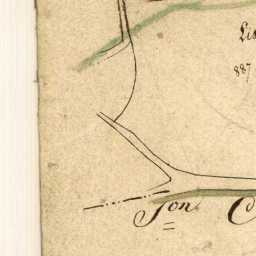 Lis
887
Jon C